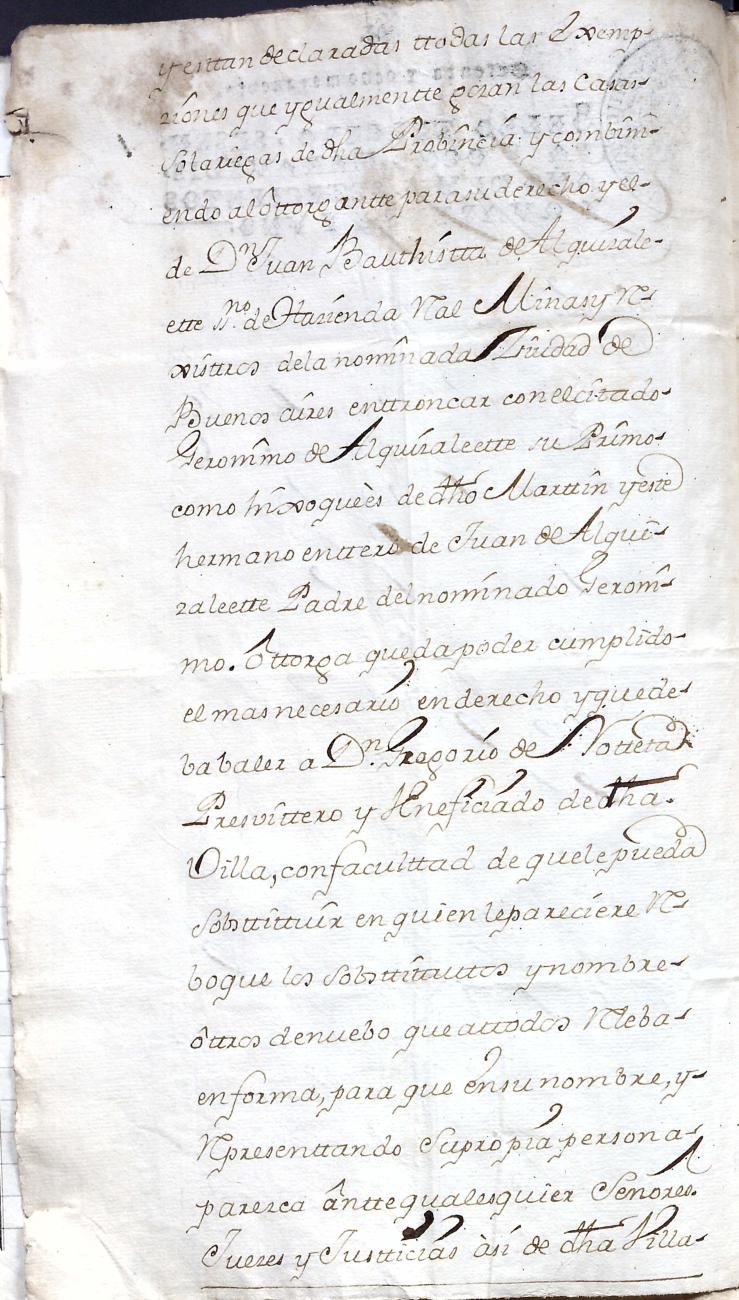 y esttan declaradas ttodas las Exemp-
ziones que ygualmentte gozan las Casas-
Solariegas de dha Probincia: y combini-
endo al ôttorgantte para su derecho y el-
de Dn Juan Bauthistta de Alquizale-
ette Sno. de Hazienda Rl Minas y Re-
xisttros de la nominada Ziudad de
Buenos aires enttroncar con el cittado-
Geronimo de Alquizaleette su Primo-
como hixo que ès de dho Marttin y este
hermano enttero de Juan de Alqui-
zaleette Padre del nominado Geroni-
mo. Ôttorga que da poder cumplido-
el mas necesario en derecho y que de-
ba valer a Dn. Gregorio de
Presvittero y Beneficiado de dha.
Villa, con faculttad de que le pueda
Sobsttittuir en quien le pareciere Re-
boque los Sobsttituttos y nombre-
ôttros de nuebo que a ttodos Releba-
en forma, para que en su nombre, y-
Representtando Su propia persona-
parezca ântte qualesquier Señores.
Juezes y Justticias àsi de dha Villa-